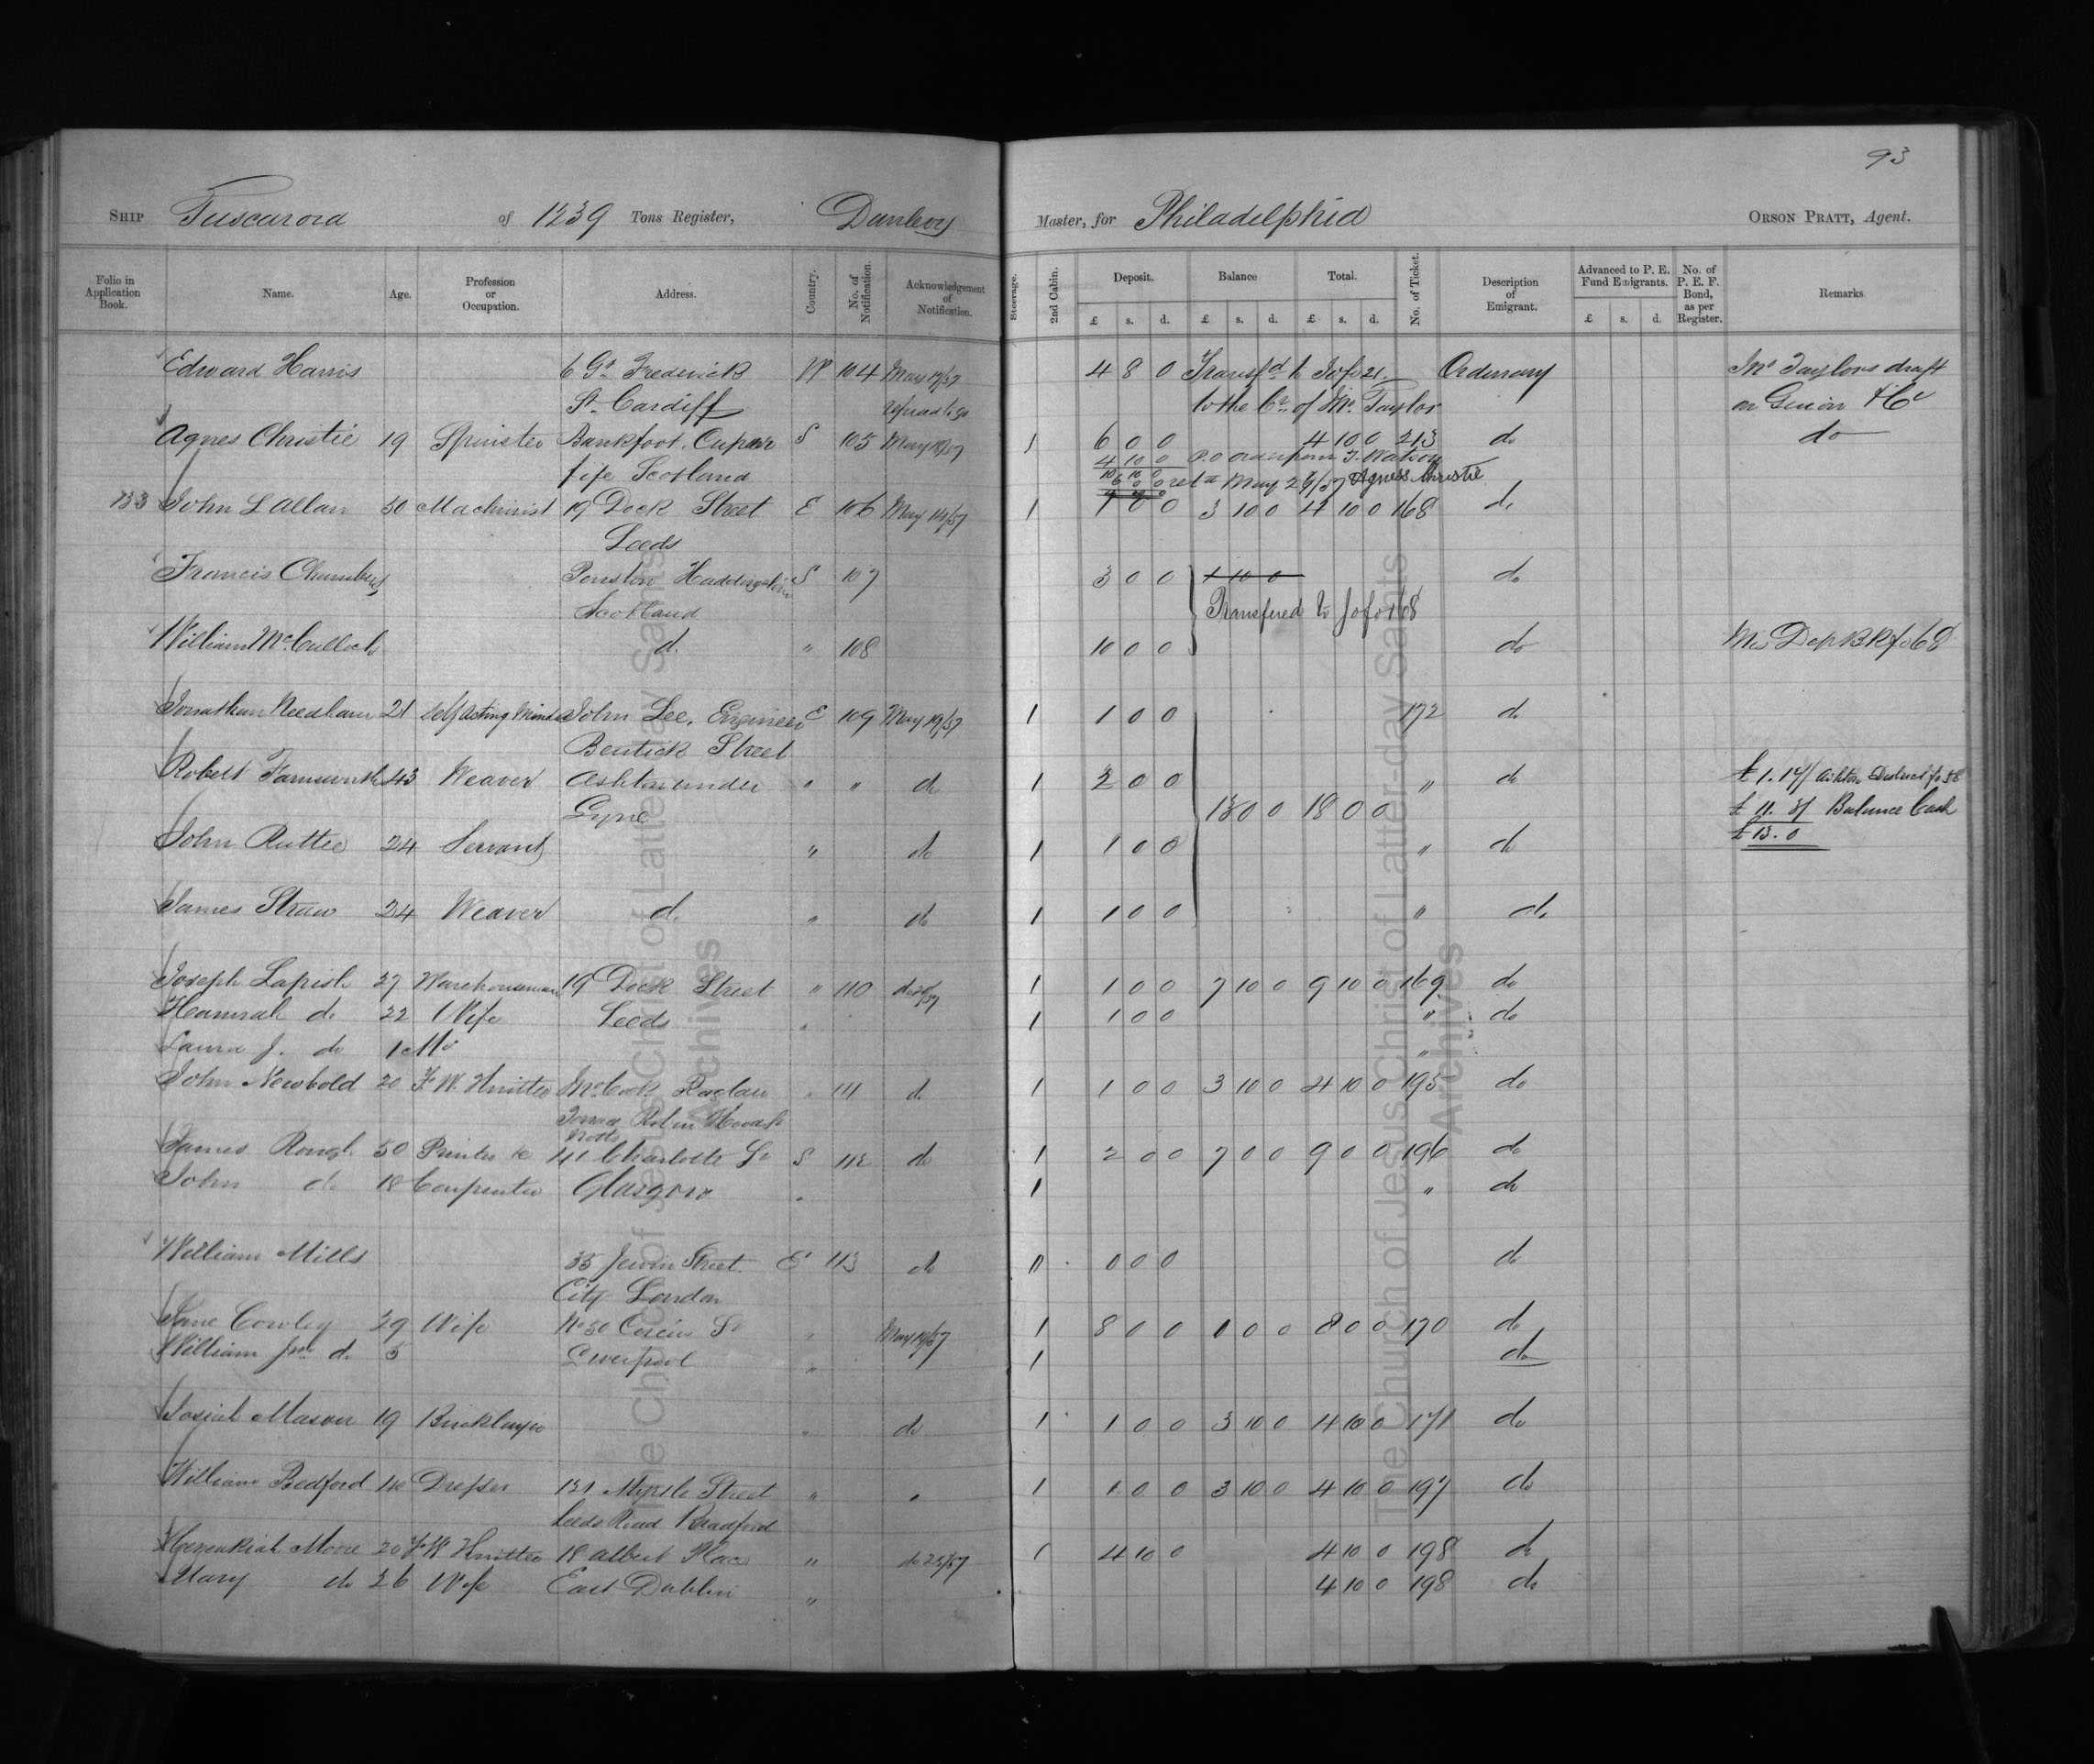 93
SHIP Tuscarora of 1239 Tons Register, Dunlevy Master, for Philadelphia ORSON PRATT, Agent.
Folio in Application Book. Name. Age. Profession or Occupation. Address. Country. No. of Notification. Acknowledgement of Notification. Steerage. 2nd Cabin. Deposit. Balance Total. No. of Ticket. Description of Emigrant. Advanced to P. E. Fund Emigrants. No. of P. E. F. Bond, as per Register. Remarks
£ s. d. £ s. d. £ s. d. £ s. d.
Edward Harris 6 Gt Frederick W 104 May 19/57 4 8 0 Transfd to fo 21 Ordinary Mr Taylors draft
St Cardiff refused to go to the Cr. of Mr. Taylor on Guion & Co
Agnes Christie 19 Spinster Bankfoot, Cupar S 105 May 19/57 1 6 0 0 4 10 0 213 do do
4 10 0 P.O order from J. Watson
fife Scotland 10 10 0
6 0 0 retd May 29/57 Agness Christie
133 John L Allan 50 Machinist 19 Dock Street E 106 May 14/57 1 1 0 0 3 10 0 4 10 0 168 do
Leeds
Francis Chambers Penston Haddingtshire S 107 3 0 0 1 10 0 do
Scotland Transfered to fo 168
William McCulloch d. " 108 10 0 0 do Dep BK fo 68
Jonathan Needham 21 Self Acting Minder John Lee, Engineer E 109 May 19/57 1 1 0 0 172 do
Bentick Street
Robert Farnsworth 43 Weaver Ashton under " " do 1 2 0 0 " do £1.17/ Ashton District fo 58
Lyne 13 0 0 18 0 0 £11.3/ Balance Cash
John Rutter 24 Servant " do 1 1 0 0 " do £13.0
James Straw 24 Weaver d. " do 1 1 0 0 " do
Joseph Lapish 27 Warehouseman 19 Dock Street " 110 do 20/57 1 1 0 0 7 10 0 9 10 0 169 do
Hannah do 22 Wife Leeds " 1 1 0 0 " do
Laura J. do 1 Mo "
John Newbold 20 F. W. Knitter Mr Cook Raglan " 111 do 1 1 0 0 3 10 0 4 10 0 195 do
Robin Hood St
Notts
James Rough 50 Printer &c 141 Charlotte St S 112 do 1 2 0 0 7 0 0 9 0 0 196 do
John do 18 Carpenter Glasgow " 1 " do
William Mills 35 Jewin Street E 113 do 0 0 0 0 do
City London
Jane Cowley 29 Wife No 50 Circus St " May 19/57 1 8 0 0 0 0 0 8 0 0 170 do
William Junr do 5 Liverpool " 1 do
Josiah Mason 19 Bricklayer " do 1 1 0 0 3 10 0 4 10 0 171 do
William Bedford Dresser 131 Myrtle Street " " 1 1 0 0 3 10 0 4 10 0 197 do
Leeds Road Bradford
Hezeakiah Moore 20 F. W. Knitter 18 Albert Place " do 25/57 1 4 10 0 4 10 0 198 do
Mary do 26 Wife East Dublin " 4 10 0 198 do
The Church of Jesus Christ of Latter-day Saints
Archives
The Church of Jesus Christ of Latter-day Saints
Archives